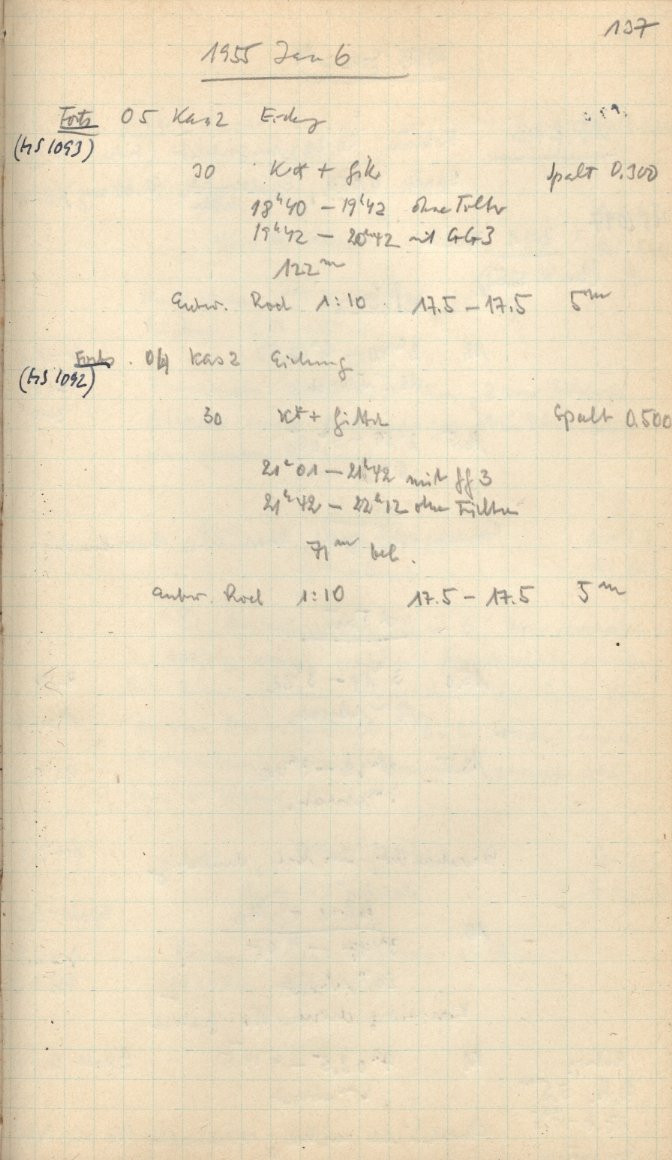 137
1955 Jan 6
Forts 05 Kas 2 Eichg
(HS 1093)
30 K* + Gik Spalt 0.300
18ʰ40 – 19ʰ42 ohne Filter
19ʰ42 – 20ʰ42 mit GG3
122ᵐ
Entw. Rod 1:10 17.5 – 17.5 5ᵐ
Forts. 04 Kas 2 Eichung
(HS 1092)
30 K* + Gitter Spalt 0.500
21ʰ01 – 21ʰ42 mit GG3
21ʰ42 – 22ʰ12 ohne Filter
71ᵐ bel.
Entw. Rod 1:10 17.5 – 17.5 5ᵐ